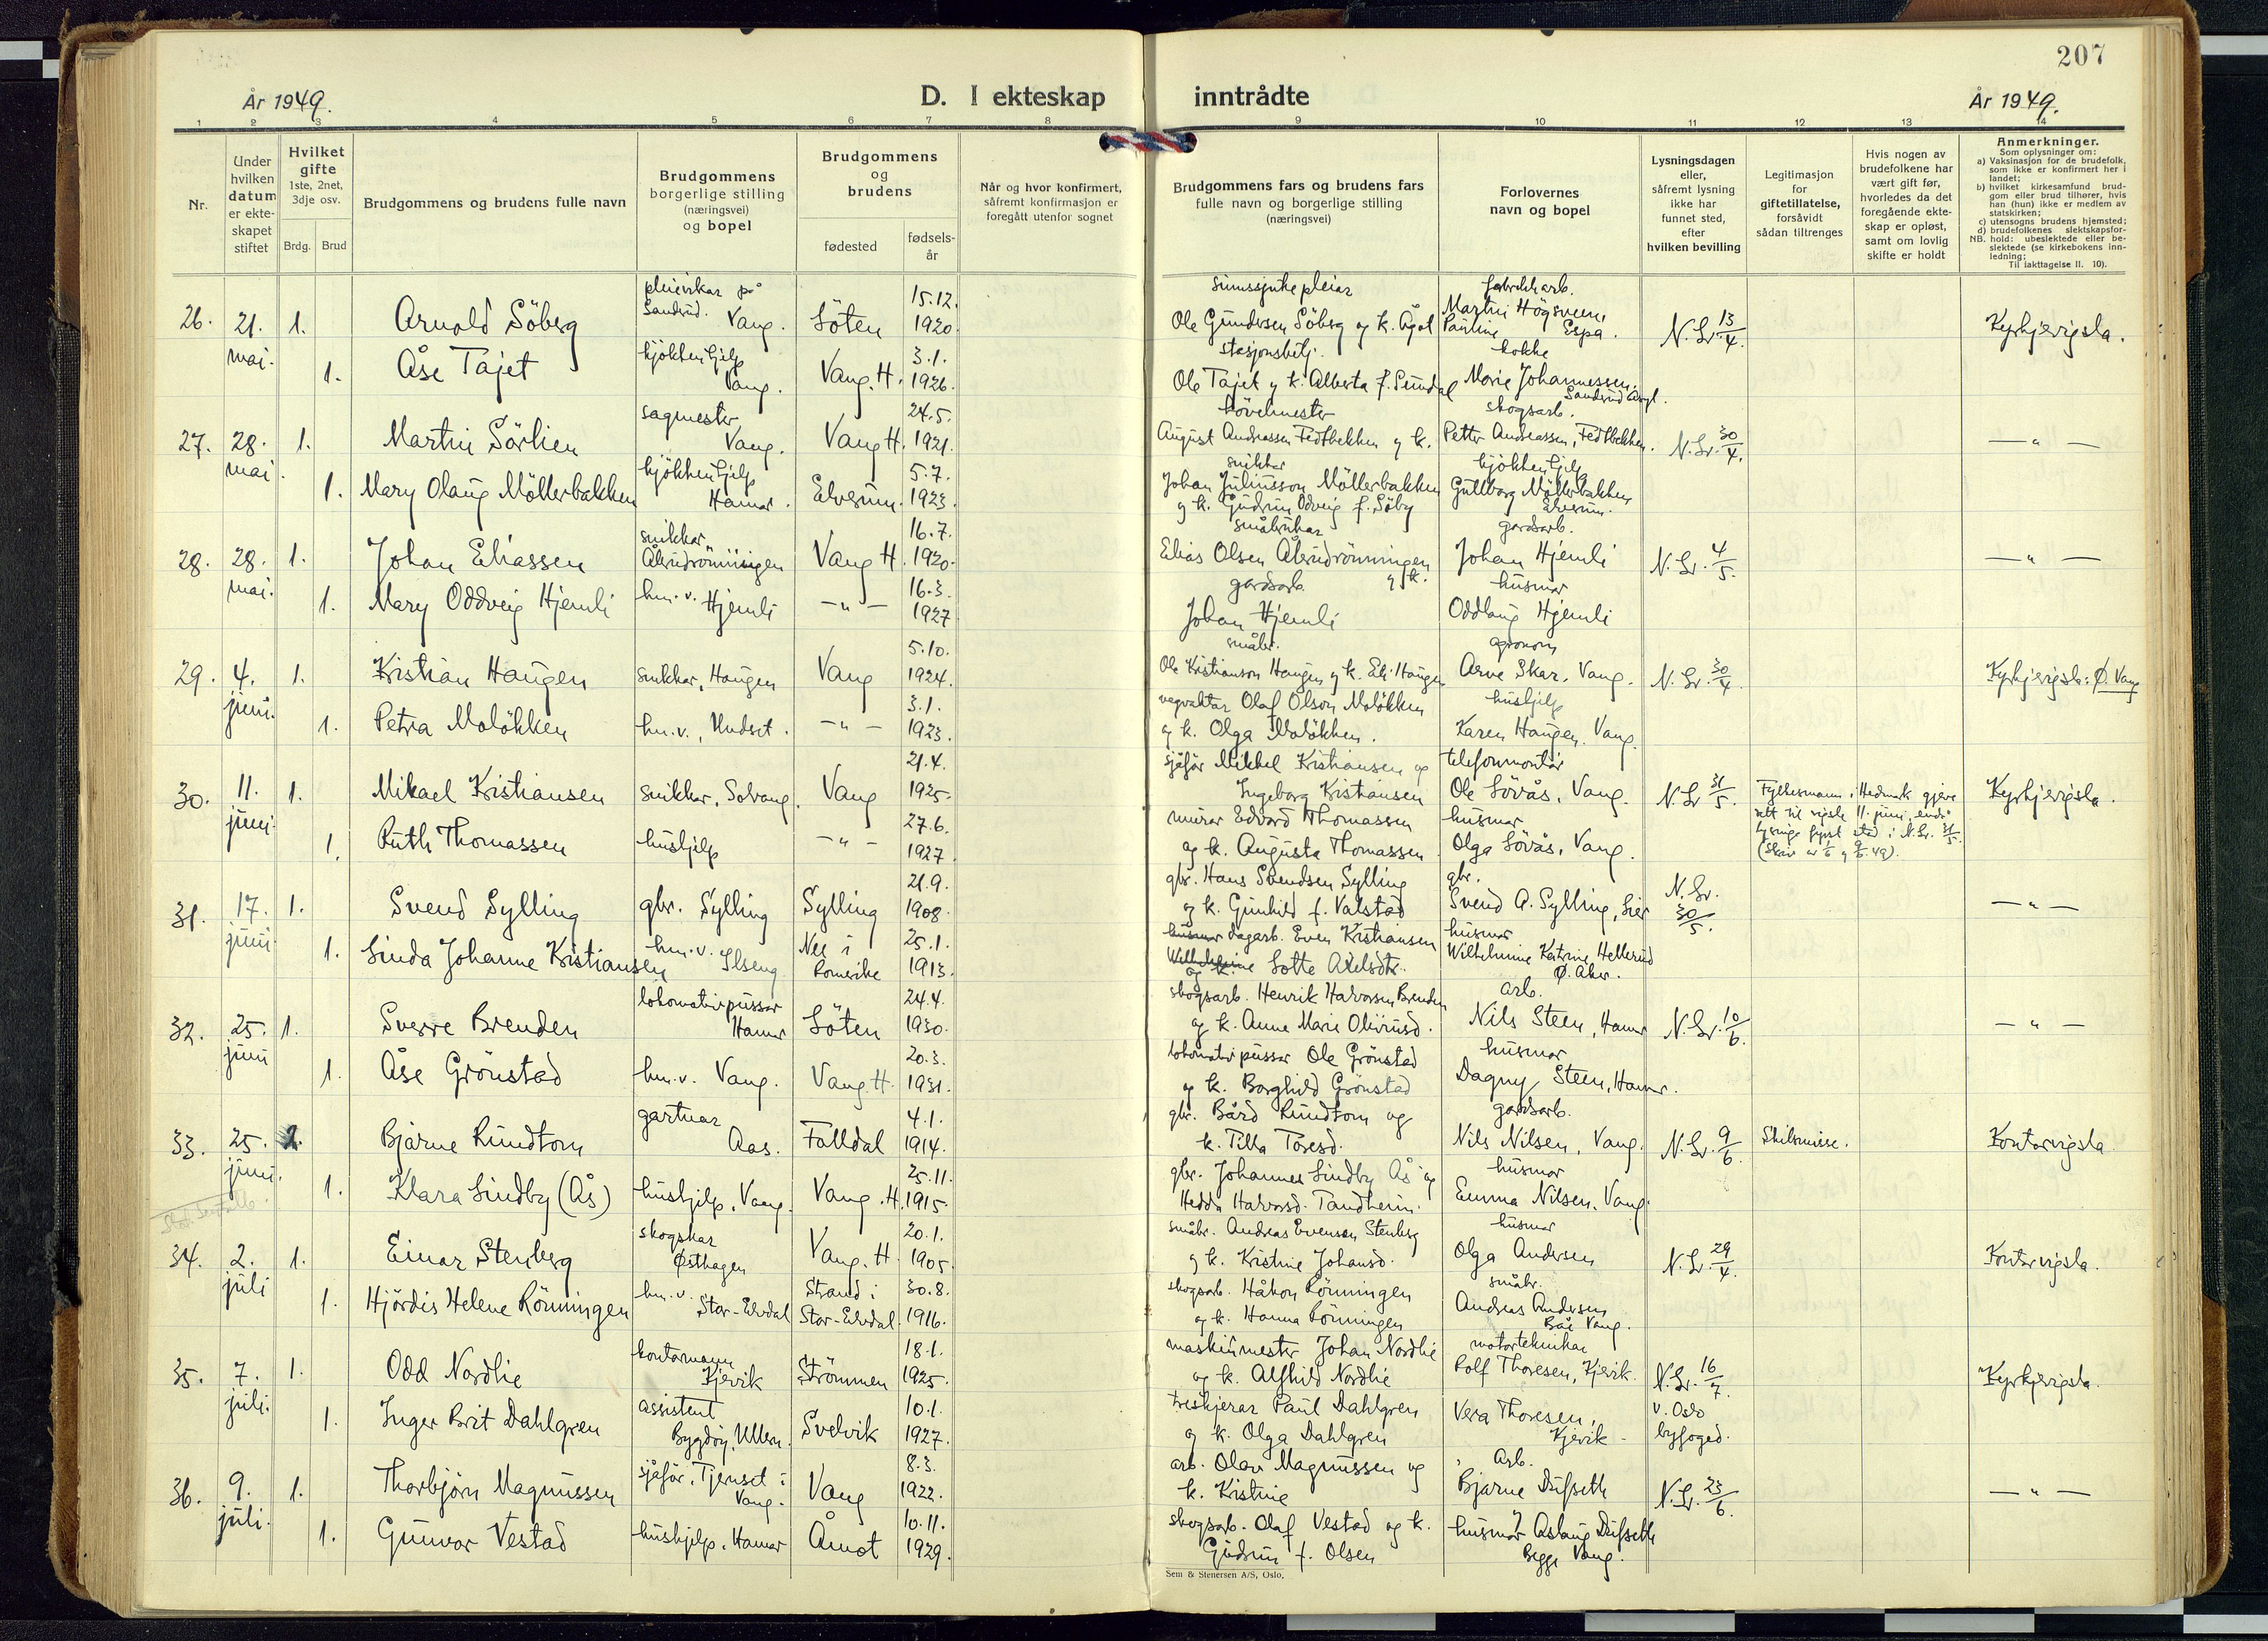 207
År 1949.
D. I ekteskap inntrådte
År 1949.
1 2 3 4 5 6 7 8 9 10 11 12 13 14
Nr.
Under hvilken datum er ekte- skapet stiftet
Hvilket gifte 1ste, 2net, 3dje osv.
Brdg. Brud
Brudgommens og brudens fulle navn
Brudgommens borgerlige stilling (næringsvei) og bopel
Brudgommens og brudens
fødested
fødsels- år
Når og hvor konfirmert, såfremt konfirmasjon er foregått utenfor sognet
Brudgommens fars og brudens fars fulle navn og borgerlige stilling (næringsvei)
Forlovernes navn og bopel
Lysningsdagen eller, såfremt lysning ikke har funnet sted, efter hvilken bevilling
Legitimasjon for giftetillatelse, forsåvidt sådan tiltrenges
Hvis nogen av brudefolkene har vært gift før, hvorledes da det foregående ekte- skap er opløst, samt om lovlig skifte er holdt
Anmerkninger.
Som oplysninger om:
a) Vaksinasjon for de brudefolk, som ikke er konfirmert her i landet;
b) hvilket kirkesamfund brud- gom eller brud tilhører, hvis han (hun) ikke er medlem av statskirken;
c) utensogns brudens hjemsted;
d) brudefolkenes slektskapsfor- hold: ubeslektede eller be- slektede (se kirkebokens inn- ledning;
NB. Til iakttagelse II. 10).
26. 21. mai. 1. Arnold Söberg pleievikar på Sandrud. Vang. Löten 15.12. 1920. sinnssjukepleiar Ole Gundersen Söberg og k. Ågot fabrikkarb. Martin Högsveen, Espa. N.Lr. 13/4. Kyrkjevigsla.
1. Åse Tajet kjökkenhjelp Vang. Vang. H. 3.1. 1926. stasjonsbetj. Ole Tajet og k. Alberta f. Sundal kokke Marie Johannessen,
27. 28. mai. 1. Martin Sörlien sagmester Vang. Vang H. 24.5. 1921. hövelmester August Andreassen Fedtbekken og k. skogsarb. Petter Andreassen, Fedtbekken. N.Lr. 30/4. — " —
1. Mary Olaug Möllerbakken kjökkenhjelp Hamar. Elverum. 5.7. 1923. snikkar Johan Juliusson Möllerbakken og k. Gudrun Odveig f. Söby kjökkenhjelp Gullborg Möllerbakken Elverum.
28. 28. mai. 1. Johan Eliassen snikkar Ålsrudrönningen Vang H. 16.7. 1920. småbrukar Elias Olsen Ålsrudrönningen og k. gardsarb. Johan Hjemli N.Lr. 4/5. — " —
1. Mary Oddveig Hjemli hm.v. Hjemli — " — 16.3. 1927 gardsarb. Johan Hjemli husmor Oddlaug Hjemli
29. 4. juni. 1. Kristian Haugen snikkar, Haugen Vang 5.10. 1924. småbr. Ole Kristianson Haugen og k. Eli Haugen agronom Arve Skar, Vang. N.Lr. 30/4. Kyrkjevigsla: Ø. Vang
1. Petra Molökken hm.v., Undset. — " — 3.1. 1923. vegvaktar Olaf Olson Molökken og k. Olga Molökken. hushjelp Karen Haugen. Vang.
30. 11. juni. 1. Mikael Kristiansen snikkar, Solvang. Vang 21.4. 1925. sjåför Mikkel Kristiansen og Ingeborg Kristiansen telefonmontör Ole Lövås, Vang. N.Lr. 31/5. Fylkesmann i Hedmark gjeve rett til vigsle 11. juni, endå lysinga fyrst sted i N.Lr. 31/5. (Skriv av 1/6 og 9/6. 49). Kyrkjevigsla.
1. Ruth Thomassen hushjelp — " — 27.6. 1927 murar Edvard Thomassen og k. Augusta Thomassen husmor Olga Lövås, Vang.
31. 17. juni 1. Svend Sylling gbr. Sylling Sylling 21.9. 1908. gbr. Hans Svendsen Sylling og k. Gunhild f. Valstad gbr. Svend A. Sylling, Lier N.Lr. 30/5. — " —
1. Linda Johanne Kristiansen hm.v. Ilseng Nes i Romerike 25.1. 1913. husmor dagarb. Even Kristiansen Wilhelmine og k. Lotte Axelsdtr. husmor Wilhelmine Katrine Hellerud Ø. Aker.
32. 25. juni 1. Sverre Brenden lokomotivpussar Hamar Löten 24.4. 1930. skogsarb. Henrik Halvorsen Brenden og k. Anne Marie Oliviusd. arb. Nils Steen, Hamar N.Lr. 10/6. — " —
1. Åse Grönstad hm.v. Vang. Vang. H. 20.3. 1931. lokomotivpussar Ole Grönstad og k. Borghild Grönstad husmor Dagny Steen, Hamar.
33. 25. juni. 2. Bjarne Rundtom gartnar Aas. Folldal 4.1. 1914. gbr. Bård Rundtom og k. Tilla Töresd. gardsarb. Nils Nilsen, Vang. N.Lr. 9/6. Skilsmisse. Kontorvigsla
1. Klara Lindby (Ås) hushjelp, Vang. Vang. H. 25.11. 1915. gbr. Johannes Lindby Ås og Hedda Halvorsd. Tandheim. husmor Emma Nilsen, Vang.
34. 2. juli 1. Einar Stenberg skogskar Østhagen Vang. H. 20.1. 1905. småbr. Andreas Evensen Stenberg og k. Kristine Johansd. husmor Olga Andersen N.Lr. 29/4. Kontorvigsla.
1. Hjördis Helene Rönningen hm.v. Stor-Elvdal Strand i Stor-Elvdal. 30.8. 1916. skogsarb. Håkon Rönningen og k. Hanna Rönningen småbr. Andreas Andersen Vang.
35. 7. juli. 1. Odd Nordlie kontormann Kjevik Strömmen 18.1. 1925. maskinmester Johan Nordlie og k. Alfhild Nordlie motorteknikar Rolf Thoresen, Kjevik. N.Lr. 16/7. v. Oslo byfoged. Kyrkjevigsla.
1. Inger Brit Dahlgren assistent Bygdöy, Ullern. Svelvik 10.1. 1927. treskjerar Paul Dahlgren og k. Olga Dahlgren Vera Thoresen, Kjevik.
36. 9. juli. 1. Thorbjörn Magnussen sjåför, Tjenset i Vang. Vang 8.3. 1922. arb. Olav Magnussen og k. Kristine Arb. Bjarne Dufseth N.Lr. 23/6. — " —
1. Gunvor Vestad hushjelp, Hamar Åmot 10.11. 1929. skogsarb. Olaf Vestad og k. Gudrun f. Olsen husmor Aslaug Dufseth Begge Vang.
Sem & Stenersen A/S, Oslo.